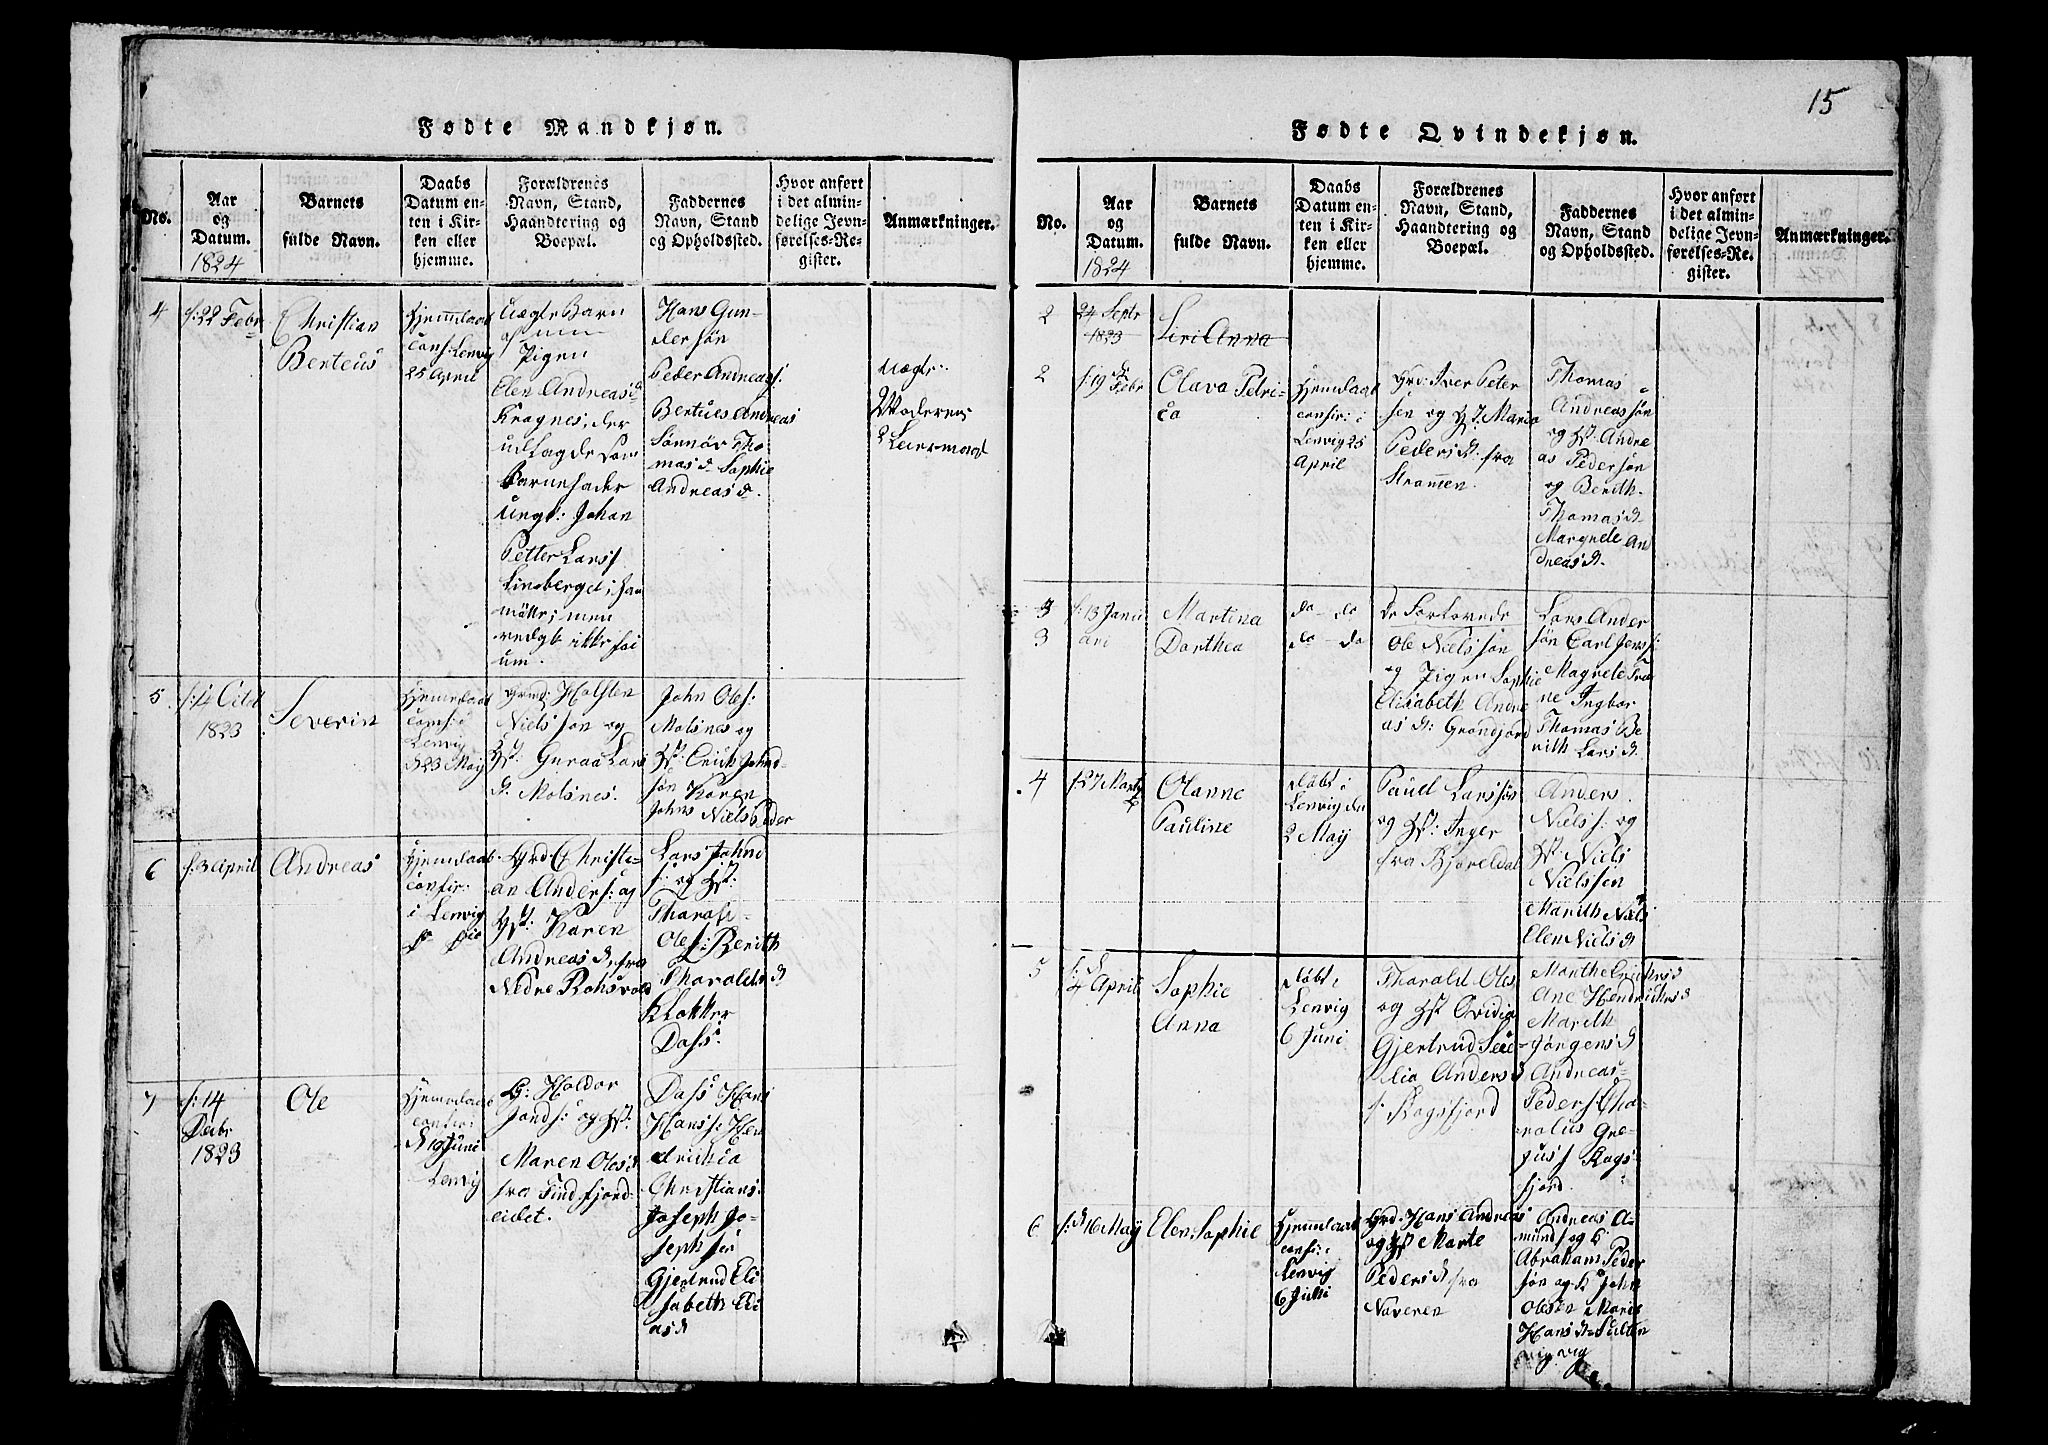 15
Fødte Mandkjøn.
No.
Aar
og
Datum.
1824
Barnets
fulde Navn.
Daabs
Datum en-
ten i Kir-
ken eller
hjemme.
Forældrenes
Navn, Stand,
Haandtering og
Boepæl.
Faddernes
Navn, Stand
og Opholdssted.
Hvor anført
i det almin-
delige Jevn-
førelses-Re-
gister.
Anmærkninger.
4
f: 22 Febr
Christian
Berteus
Hjemdaabt
conf: Lenvig
25 April
Uægte Barn
af
Pigen
Elen Andreas d
Kragnes, der
udlagde som
Barnefader
Ungk: Johan
Petter Lars f
Lindberget,
men
um.
Hans Gun-
dersøn
Peder Andreas f:
Bertues Andreas
Sønnøv Tho
mas d. Sophie
Andreas d.
Uægte.
Moderens
2 Leiermaal
5
1823
Severin
Hjemdaabt
conf: i
Lenvig
d 23 May
Grd: Holsten
Niels søn og
Hst: Guraa Lars
d. Molsnes.
John Oles:
Molsnes og
Hst: Erich Johnd-
søn Karen
Johns Niels Peder
6
f: 3 April
Andreas
Hjemdaabt
confir:
i Lenvig
Grd: Christi-
an Anders: og
Hst: Karen
Andreas d. fra
Nedre Rohsvold
Lars Johnd
f: og Hst:
Tharald
Oles: Berith
Tharalds d
Klokker
Dass.
7
f: 14
Decbr
1823
Ole
Hjemdaabt
confir:
d 19 Juni
Lenvig
G: Haldor
Jonds: og Hst:
Maren Oles d
fra Findfjord-
eidet.
Dass Hans
Hans f: Hen
drichia
Christians:
Joseph Jo-
seph søn
Gjertrud Eli
sabeth Eli
as d
Fødte Qvindekjøn.
No.
Aar
og
Datum.
1824
Barnets
fulde Navn.
Daabs
Datum en-
ten i Kir-
ken eller
hjemme.
Forældrenes
Navn, Stand,
Haandtering og
Boepæl.
Faddernes
Navn, Stand
og Opholdssted.
Hvor anført
i det almin-
delige Jevn-
førelses-Re-
gister.
Anmærkninger.
2
24 Septr
1823
Siri Anna
2
f: 19 Febr
Olava Petri-
ca
Hjemdaabt
confir: i
Lenvig 25
April
Grd: Iver Peter
sen og Hst: Maria
Peders d. fra
Strømmen.
Thomas
Andreas søn
og Hst: Andre
as Peder søn
og Berith
Thomas d
Margrete An
dreas d.
3
3
f: 13 Janu
ari
Martina
Dorthea
do - do
do - do
De Forlovede
Ole Niels søn
og Pigen Sophie
Elisabeth Andre
as d: Grandfjord
Lars Ander
søn Carl Jens f:
Magrete
Ingbor
Thomas Be
rith Lars d
4
f: 27 Marti
Olanne
Pauline
døbt i
Lenvig den
2 May
Paul Lars søn
og Hst: Inger
fra Bjoreldal
Anders
Niels f: og
Hst: Niels
Nielssen
Marith Niels
Elen Niels d
5
f: d
4 April
Sophie
Anna
døbt i
Lenvig
6 Juni
Tharald Oles
og Hst Ovidia
Gjertrud
Anders d
Marthe Erichs d
Ane Hendrichs d
Marith
Jørgens d
Andreas
Peders f Tha-
ralus Gre-
gus f Rogs-
fjord.
6
f: d 16 May
Elen Sophie
Hjemdaabt
conf: i
Lenvig
6 Juni
Grd: Hans Andreas
og Hst Marte
Peders d fra
Naveren
Andreas A-
mund f og H
Abraham Peder
søn og H John
Olesen Marie
Hans d
vig